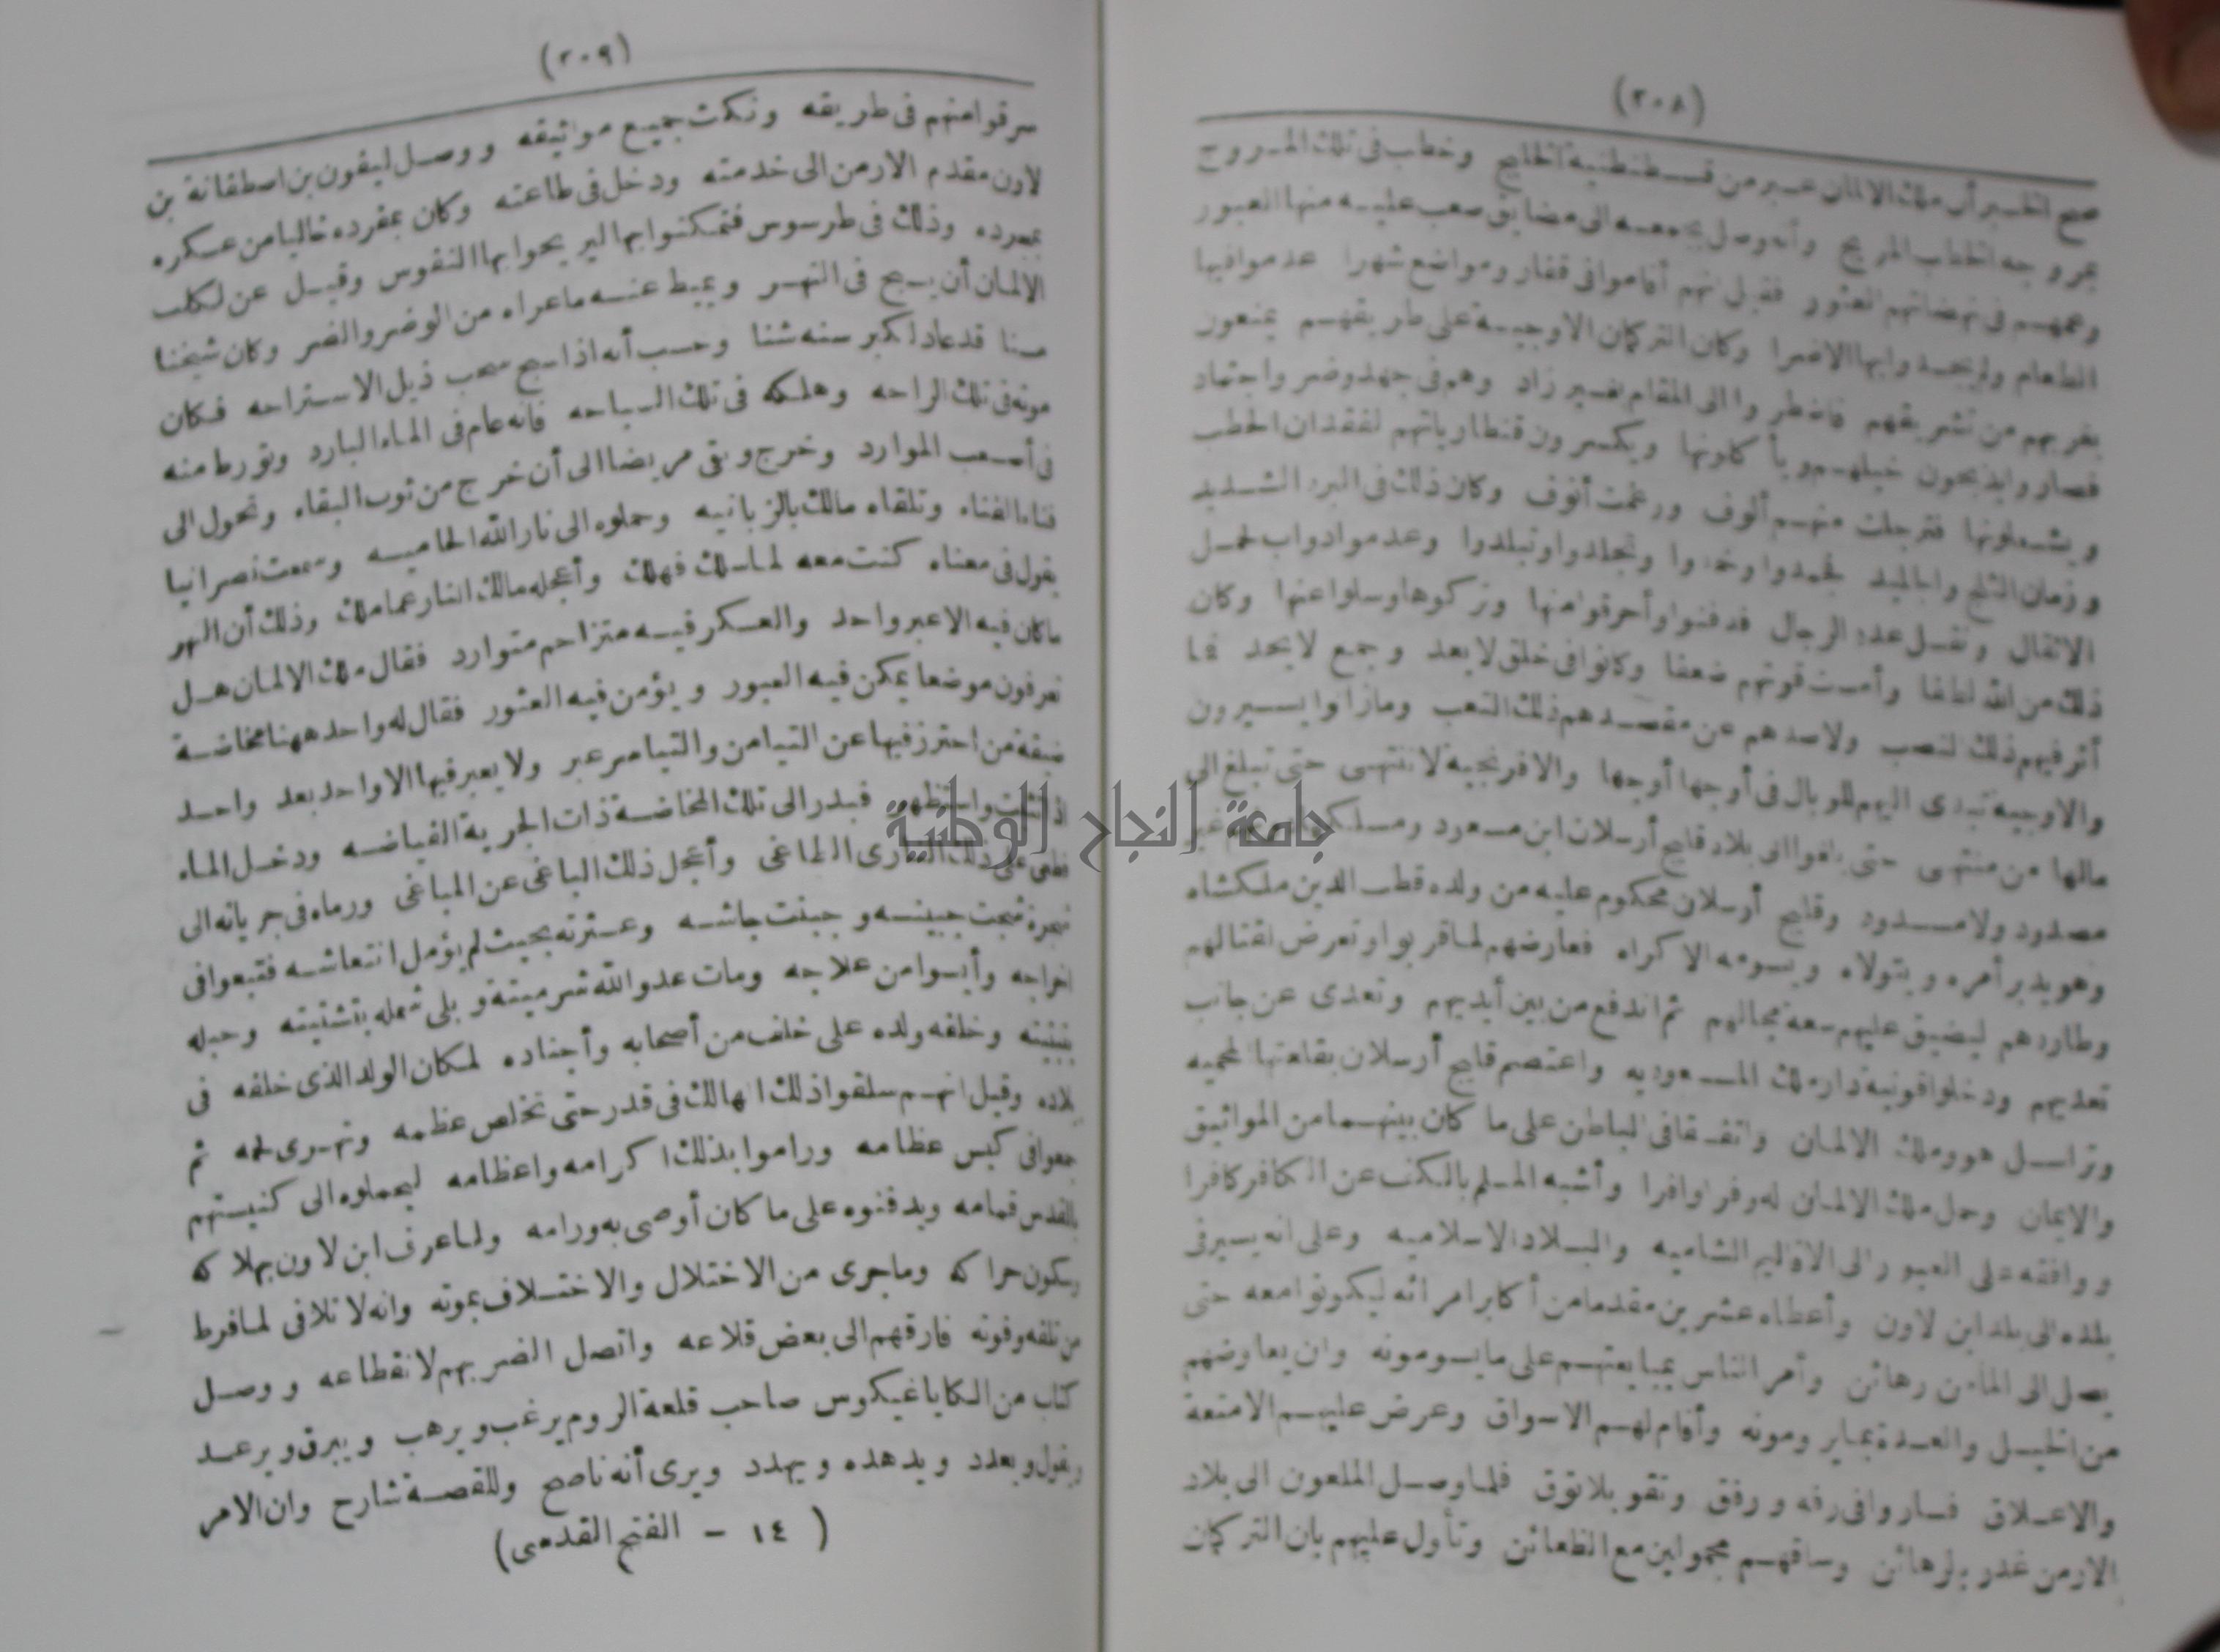 (٢٠٨)
صح الخبر أن ملك الالمان عبر من قسطنطينية الخليج وخطب فى تلك المروج
بمروجه الخطب المريج وأنه وصل بجمعه الى مضايق صعب عليه منها العبور
وعمهم فى نهضاتهم العثور فقيل انهم أقاموا فى قفار ومواضع شهرا عدموا فيها
الطعام ولم يجدوا بها الا ضرا وكان التركمان الاوجية على طريقهم يمنعون
بغربهم من تشريقهم فاضطروا الى المقام بغير زاد وهم فى جهد وضر واجتهاد
فصاروا يذبحون خيلهم ويأكلونها ويكسرون قنطارياتهم لفقدان الحطب
ويشعلونها فترجلت منهم ألوف ورغمت أنوف وكان ذلك فى البرد الشديد
وزمان الثلج والجليد فجمدوا وخمدوا وتجلدوا وتبلدوا وعدموا دواب لحمل
الاثقال ونقل عدد الرجال فدفنوا وأحرقوا منها وتركوها وسلوا عنها وكان
ذلك من الله لطفا وأمست قوتهم ضعفا وكانوا فى خلق لا يعد وجمع لا يحد فما
أثر فيهم ذلك النصب ولا صدهم عن مقصدهم ذلك التعب ومازالوا يسيرون
والاوجية تبدى اليهم للوبال فى أوجها أوجها والافرنجية لا تنتهى حتى تبلغ الى
مالها من منتهى حتى بلغوا الى بلاد قليج أرسلان ابن مسعود ومسلكهم غير
مصدود ولا مسدود وقليج أرسلان محكوم عليه من ولده قطب الدين ملكشاه
وهو يدير أمره ويتولاه ويسومه الاكراه فعارضهم لما قربوا وتعرض لقتالهم
وطاردهم ليضيق عليهم سعة مجالهم ثم اندفع من بين أيديهم وتعدى عن جانب
تعديهم ودخلوا قونية دار ملك المسعوديه واعتصم قليج أرسلان بقلعتها المحميه
وتراسل هو وملك الالمان واتفقا فى الباطن على ما كان بينهما من المواثيق
والايمان وحمل ملك الالمان له وفرا وافرا وأشبه المسلم بالكف عن الكافر كافرا
ووافقه على العبور الى الاقاليم الشاميه والبلاد الاسلاميه وعلى انه يسير فى
بلده الى بلد ابن لاون وأعطاه عشرين مقدما من أكابر امرائه ليكونوا معه حتى
يصل الى المأمن رهائن وأمر الناس بمبايعتهم على ما يسومونه وان يعاوضهم
من الخيل والعدة بماير ومونه وأقام لهم الاسواق وعرض عليهم الامتعة
والاعلاق فساروا فى رفه ورفق وتقو بلا توق فلما وصل الملعون الى بلاد
الارمن غدر بالرهائن وساقهم محمولين مع الظعائن وتأول عليهم بان التركمان
(٢٠٩)
سرقوا منهم فى طريقه ونكث جميع مواثيقه ووصل ليفون بن اصطفانة بن
لاون مقدم الارمن الى خدمته ودخل فى طاعته وكان بمفرده خاليا من عسكره
بمجرده وذلك فى طرسوس فتمكثوا بها ليريحوا بها النفوس وقيل عن لكلب
الالمان أن يسبح فى النهر ويميط عنه ما عراه من الوضر والضر وكان شيخنا
مسنا قد عاد لكبر سنه شنا وحسب أنه اذا سبح سحب ذيل الاستراحه فكان
موته فى تلك الراحه وهلكه فى تلك السباحه فانه عام فى الماء البارد وتورط منه
فى أصعب الموارد وخرج وبقى مريضا الى أن خرج من ثوب البقاء وتحول الى
فناء الفناء وتلقاه مالك بالزبانيه وحملوه الى نار الله الحاميه وسمعت نصرانيا
يقول فى معناه كنت معه لما سلك فهلك وأعجله مالك النار عما ملك وذلك أن النهر
ما كان فيه الا عبر واحد والعسكر فيه متزاحم متوارد فقال ملك الالمان هل
تعرفون موضعا يمكن فيه العبور ويؤمن فيه العثور فقال له واحد ههنا مخاضة
ضيقة من احترز فيها عن التيامن والتياسر عبر ولا يعبر فيها الا واحد بعد واحد
اذا تثبت واستظهر فبدر الى تلك المخاضة ذات الجرية الفياضه ودخل الماء
فطغى على ذلك الطاغى وأعجل ذلك الباغى عن المباغى ورماه فى جريانه الى
شجرة شجت جبينه وجبنت جاشه وعثرته بحيث لم يؤمل انتعاشه فتعبوا فى
اخراجه وأيسوا من علاجه ومات عدو الله شر ميتة وبلى شمله بتشتيته وحبله
بتبتيته وخلفه ولده على خلف من أصحابه وأجناده لمكان الولد الذى خلفه فى
بلاده وقيل انهم سلقوا ذلك الهالك فى قدر حتى تخلص عظمه وتهرى لحمه ثم
جمعوا فى كيس عظامه وراموا بذلك اكرامه واعظامه ليحملوه الى كنيستهم
بالقدس قمامه ويدفنوه على ما كان أوصى به ورامه ولما عرف ابن لاون بهلاكه
وسكون حراكه وما جرى من الاختلال والاختلاف بموته وانه لا تلافى لما فرط
من تلفه وفوته فارقهم الى بعض قلاعه واتصل الضر بهم لانقطاعه ووصل
كتاب من الكاياغيكوس صاحب قلعة الروم يرغب ويرهب ويبرق ويرعد
ويقول ويعدد ويدهده ويهدد ويرى أنه ناصح وللقصة شارح وان الامر
(١٤ - الفتح القدسى)
جامعة النجاح الوطنية